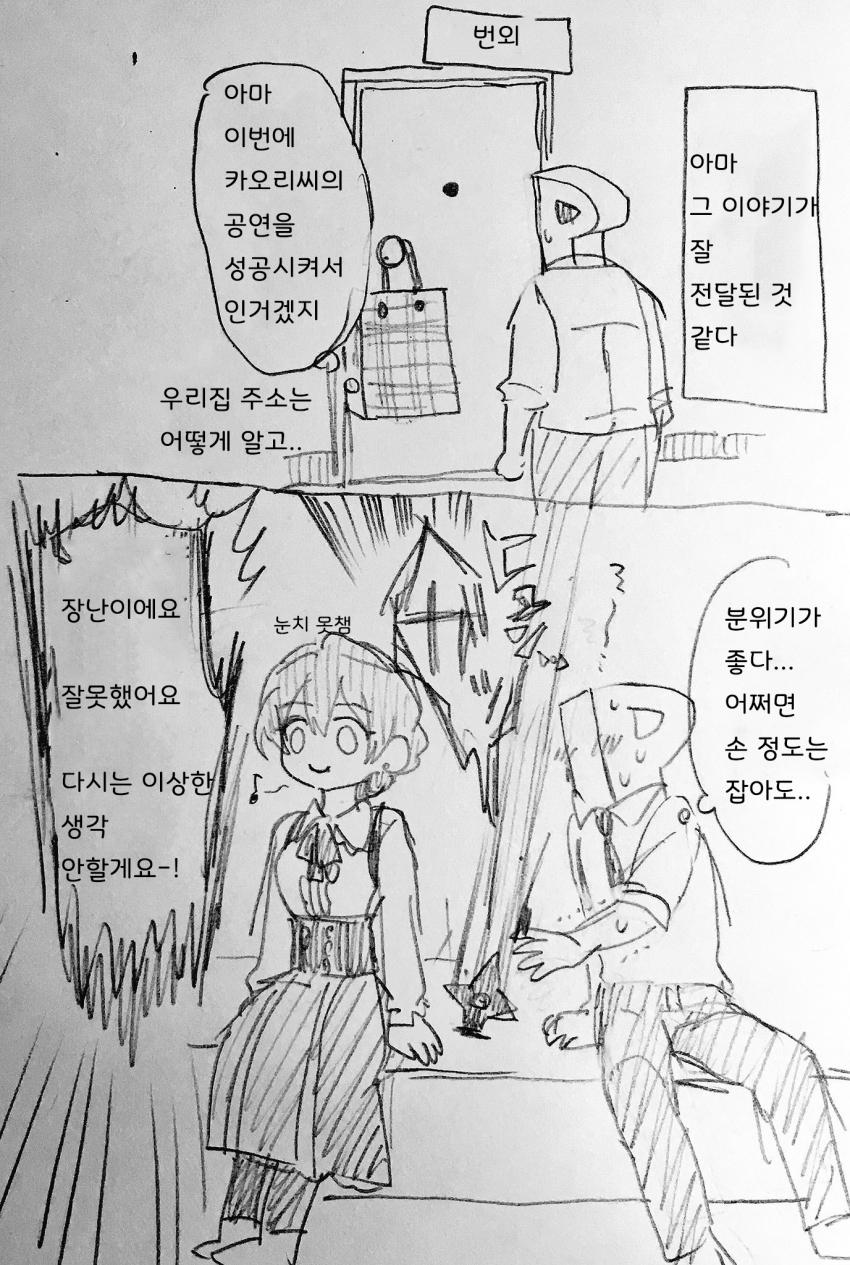 번외
아마
그 이야기가
잘
전달된 것
같다
아마
이번에
카오리씨의
공연을
성공시켜서
인거겠지
우리집 주소는
어떻게 알고..
분위기가
좋다...
어쩌면
손 정도는
잡아도..
눈치 못챔
장난이에요
잘못했어요
다시는 이상한
생각
안할게요-!